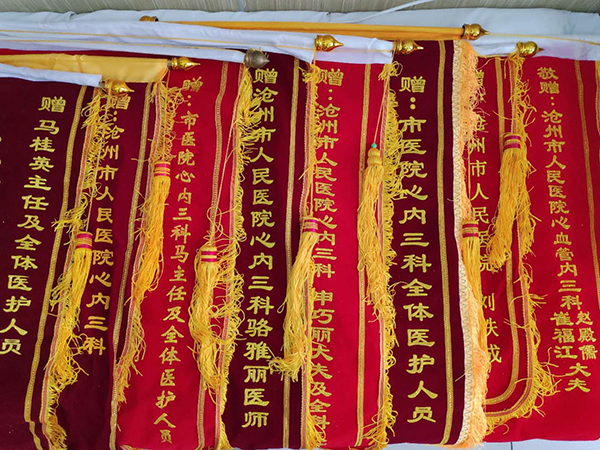 赠
马桂英主任及全体医护人员
赠：沧州市人民医院心内三科
赠：市医院心内三科马主任及全体医护人员
赠：沧州市人民医院心内三科骆雅丽医师
赠：沧州市人民医院心内三科 申巧丽大夫及全科
赠：市医院心内三科全体医护人员
赠
州市人民医院
刘
敬赠：沧州市人民医院心血管内三科
赵殿儒
崔福江
大夫